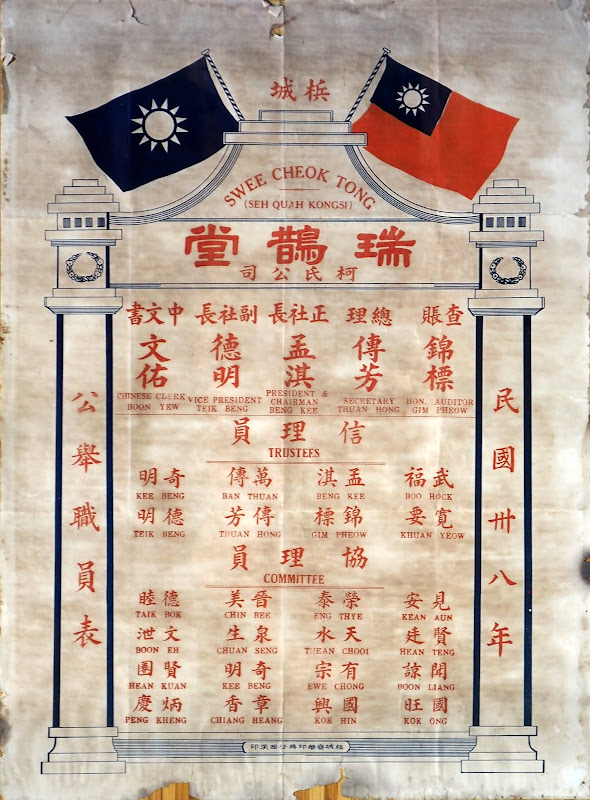 梹城
SWEE CHEOK TONG
(SEH QUAH KONGSI)
瑞鵲堂
柯氏公司
民國卅八年
公舉職員表
查賬 總理 正社長 副社長 中文書
錦標 傳芳 孟淇 德明 文佑
CHINESE CLERK VICE PRESIDENT PRESIDENT & CHAIRMAN SECRETARY HON. AUDITOR
BOON YEW TEIK BENG BENG KEE THUAN HONG GIM PHEOW
信理員
TRUSTEES
武福 孟淇 萬傳 奇明
KEE BENG BAN THUAN BENG KEE BOO HOCK
寬要 錦標 傳芳 德明
TEIK BENG THUAN HONG GIM PHEOW KHUAN YEOW
協理員
COMMITTEE
見安 榮泰 晉美 德睦
TAIK BOK CHIN BEE ENG THYE KEAN AUN
賢廷 天水 泉生 文泄
BOON EH CHUAN SENG THEAN CHOOI HEAN TENG
聞諒 有宗 奇明 賢
HEAN KUAN KEE BENG EWE CHONG BOON LIANG
國旺 國興 章香 炳慶
PENG KHENG CHIANG HEANG KOK HIN KOK ONG